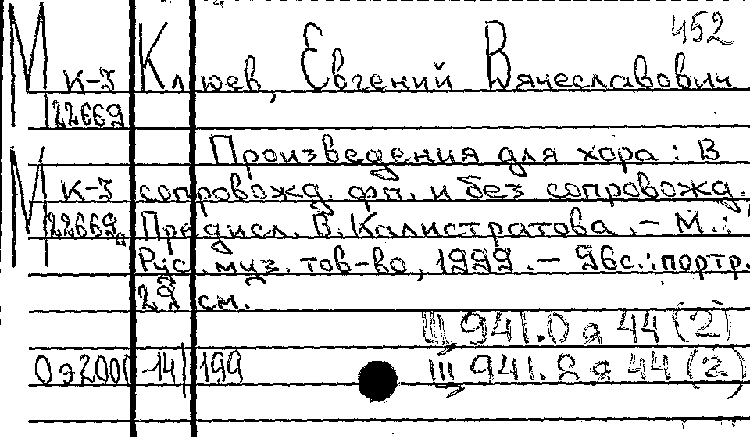 452
М К-3 Клюев, Евгений Вячеславович
22669
Произведения для хора : В
М К-3 сопровожд. фп. и без сопровожд.
22669а Предисл. В. Калистратова . – М. :
Рус. муз. тов-во, 1999 . – 96с. : портр.
29 см.
Щ 941.0 я 44 (2)
О э2000 -14/199 Щ 941.8 я 44 (2)